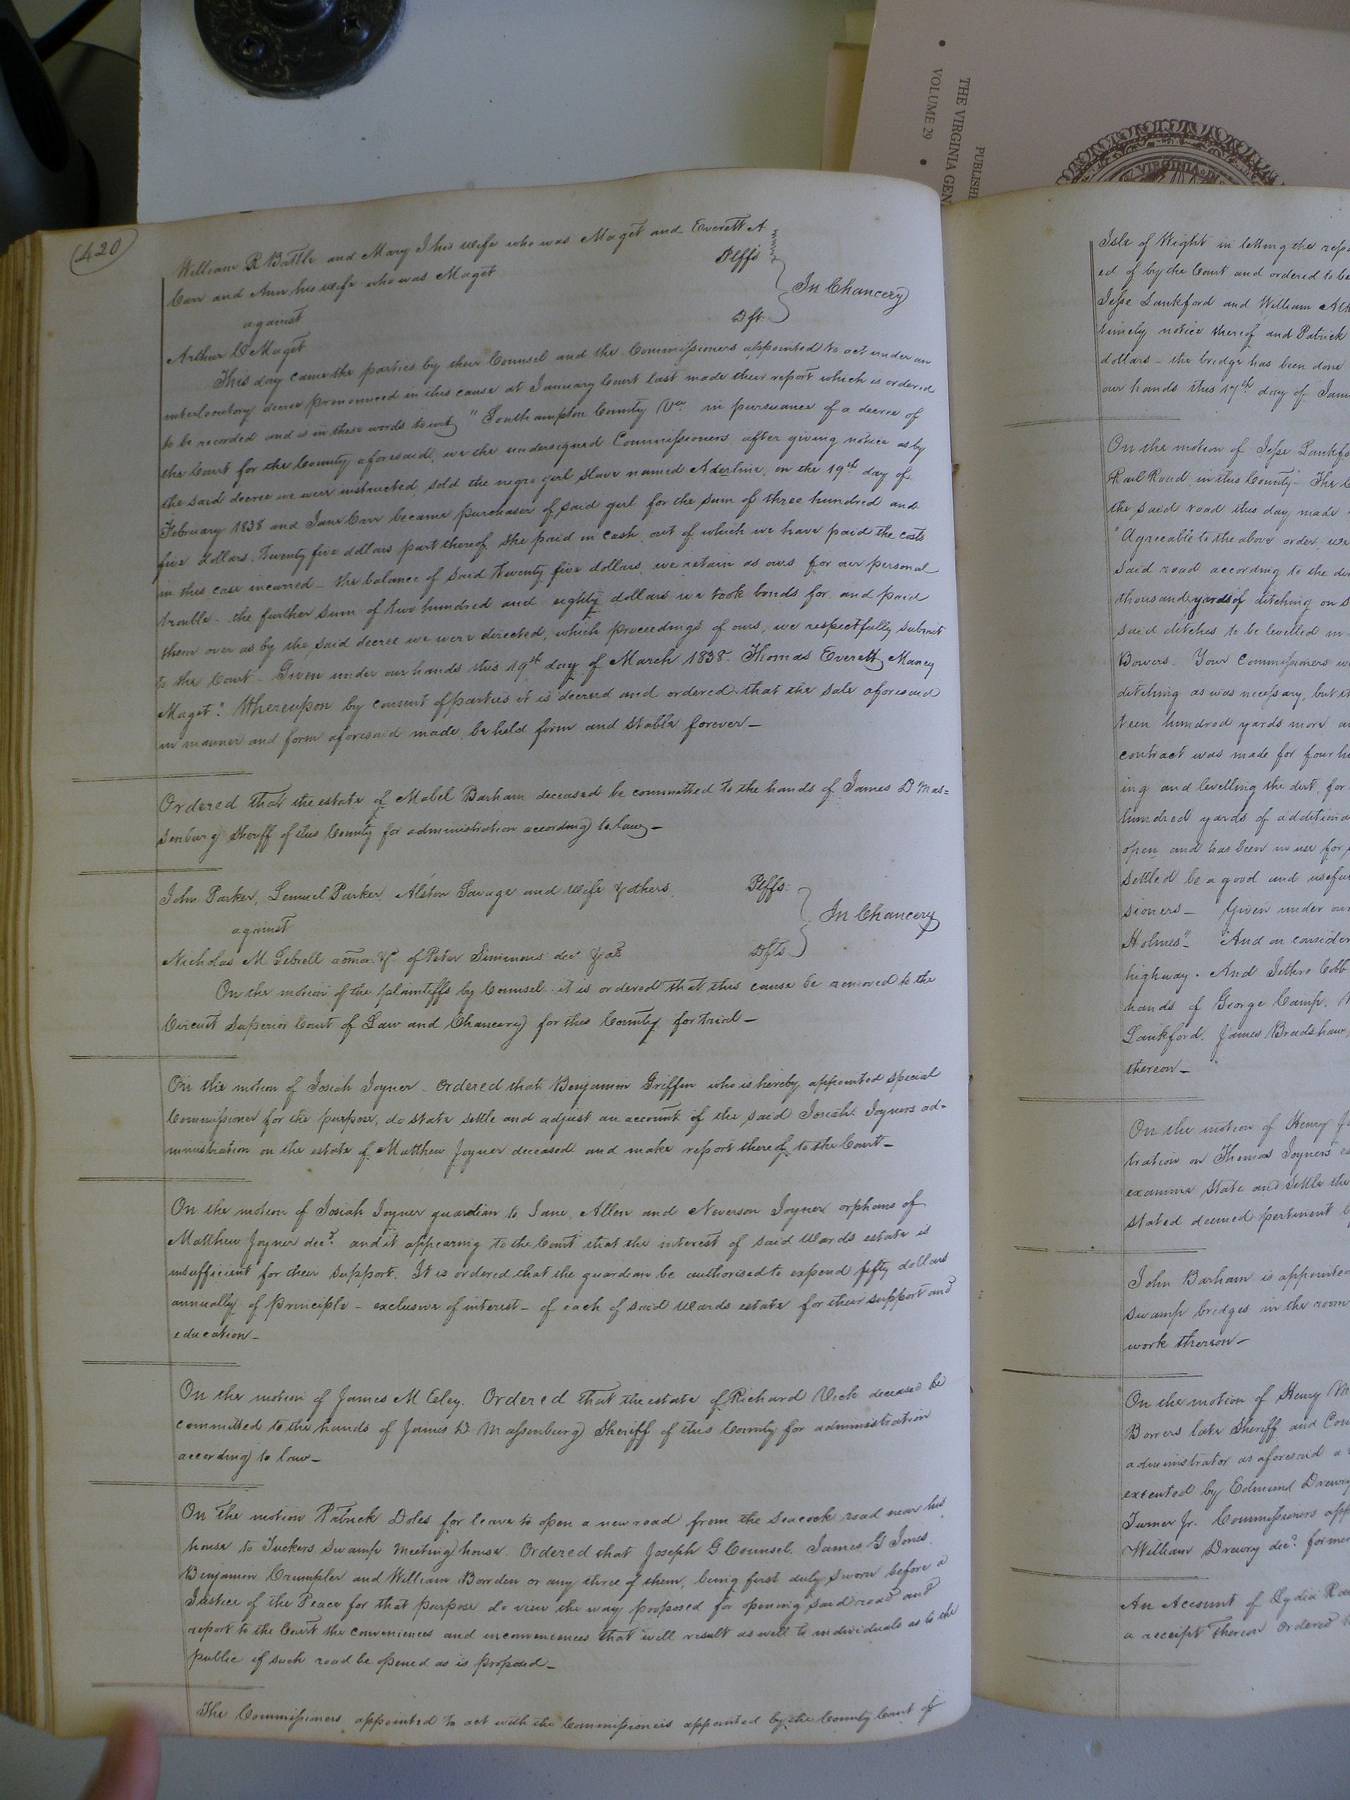 THE VIRGINIA GEN
VOLUME 29
PUBLISH
VIRGINIA
420
William R Battle and Mary J his wife who was Maget and Everett A
Carr and Ann his wife who was Maget Plffs
against In Chancery
Arthur Maget Dft
This day came the parties by their Counsel and the Commissioners appointed to act under an
interlocutory decree pronounced in this cause at January Court last made their report which is ordered
to be recorded and is in these words to wit, "Southampton County Va. in pursuance of a decree of
the Court for the County aforesaid, we the undersigned Commissioners after giving notice as by
the said decree we were instructed sold the negro girl slave named Aderline, on the 19th day of
February 1838 and Jane Carr became purchaser of said girl for the sum of three hundred and
five dollars. Twenty five dollars part thereof she paid in cash, out of which we have paid the costs
in this case incurred - the balance of said twenty five dollars, we return as ours for our personal
trouble - the further sum of two hundred and eighty dollars we took bonds for and paid
them over as by the said decree we were directed, which proceedings of ours, we respectfully submit
to the Court - Given under our hands this 19th day of March 1838. Thomas Everett, Maney
Maget." Whereupon by consent of parties it is decreed and ordered that the sale aforesaid
in manner and form aforesaid made, be held firm and stable forever -
Ordered that the estate of Mabel Barham deceased be committed to the hands of James D Mas=
senburg Sheriff of this County for administration according to law -
John Parker, Lemuel Parker, Alston Savage and wife & others Plffs.
against In Chancery
Nicholas M Sebrell admr. &c of Peter Simmons dec. & als Dfts
On the motion of the plaintiffs by Counsel it is ordered that this cause be removed to the
Circuit Superior Court of Law and Chancery for this County for trial -
On the motion of Josiah Joyner - Ordered that Benjamin Griffin who is hereby appointed special
Commissioner for the purpose, do state settle and adjust an account of the said Josiah Joyners ad-
ministration on the estate of Matthew Joyner deceased and make report thereof to the Court -
On the motion of Josiah Joyner guardian to Jane, Allen and Neverson Joyner orphans of
Matthew Joyner decd. and it appearing to the Court that the interest of said wards estate is
insufficient for their support. It is ordered that the guardean be authorised to expend fifty dollars
annually of principle - exclusive of interest - of each of said wards estate for their support and
education -
On the motion of James M Eley. Ordered that the estate of Richard Vick deceased be
committed to the hands of James D Massenburg Sheriff of this County for administration
according to law -
On the motion Patrick Doles for leave to open a new road from the Seacock road near his
house to Tuckers Swamp Meeting house. Ordered that Joseph G Counsel, James G Jones,
Benjamin Crumpler and William Bowden or any three of them, being first duly sworn before a
Justice of the Peace for that purpose do view the way proposed for opening said road and
report to the Court the conveniences and inconveniences that will result as well to individuals as to the
public if such road be opened as is proposed -
The Commissioners appointed to act with the Commissioners appointed by the County Court of
Isle of Wight in letting the rep
ed of by the Court and ordered to be
Jesse Lankford and William
timely notice thereof and Patrick
dollars - the bridge has been done
our hands this 17th day of Jan
On the motion of Jesse Lankfo
Rail Road in this County" The
the said road this day made
"Agreeable to the above order, we
said road according to the
thousand yards of ditching on
said ditches to be levelled
Bowers. Your Commissioners
ditching as was necessary, but
teen hundred yards more
contract was made for four
ing and levelling the dirt, for
hundred yards of additiona
open and has been in use for
settled be a good and useful
sioners - Given under our
Holmes" - "And on consider
highway. And Jethro Cobb
hands of George Camp,
Lankford, James Bradshaw,
thereon -
On the motion of Henry
tration on Thomas Joyners
examine state and settle the
stated deemed pertinent
John Barham is appointed
swamp bridges in the room
work thereon -
On the motion of Henry
Bowers late Sheriff and
administrator as aforesaid
executed by Edmund Drewry
Turner Jr. Commissioners
William Drewry decd. former
An Account of Lydia
a receipt thereon ordered